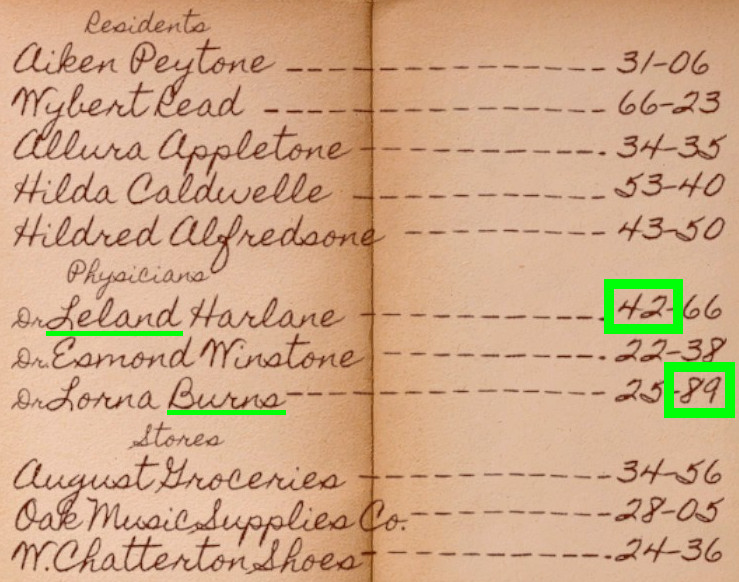 Residents
Aiken Peytone 31-06
Wybert Read 66-23
Allura Appletone 34-35
Hilda Caldwelle 53-40
Hildred Alfredsone 43-50
Physicians
Dr Leland Harlane 42-66
Dr. Esmond Winstone 22-38
Dr Lorna Burns 25-89
Stores
August Groceries 34-56
Oak Music Supplies Co. 28-05
W. Chatterton Shoes 24-36